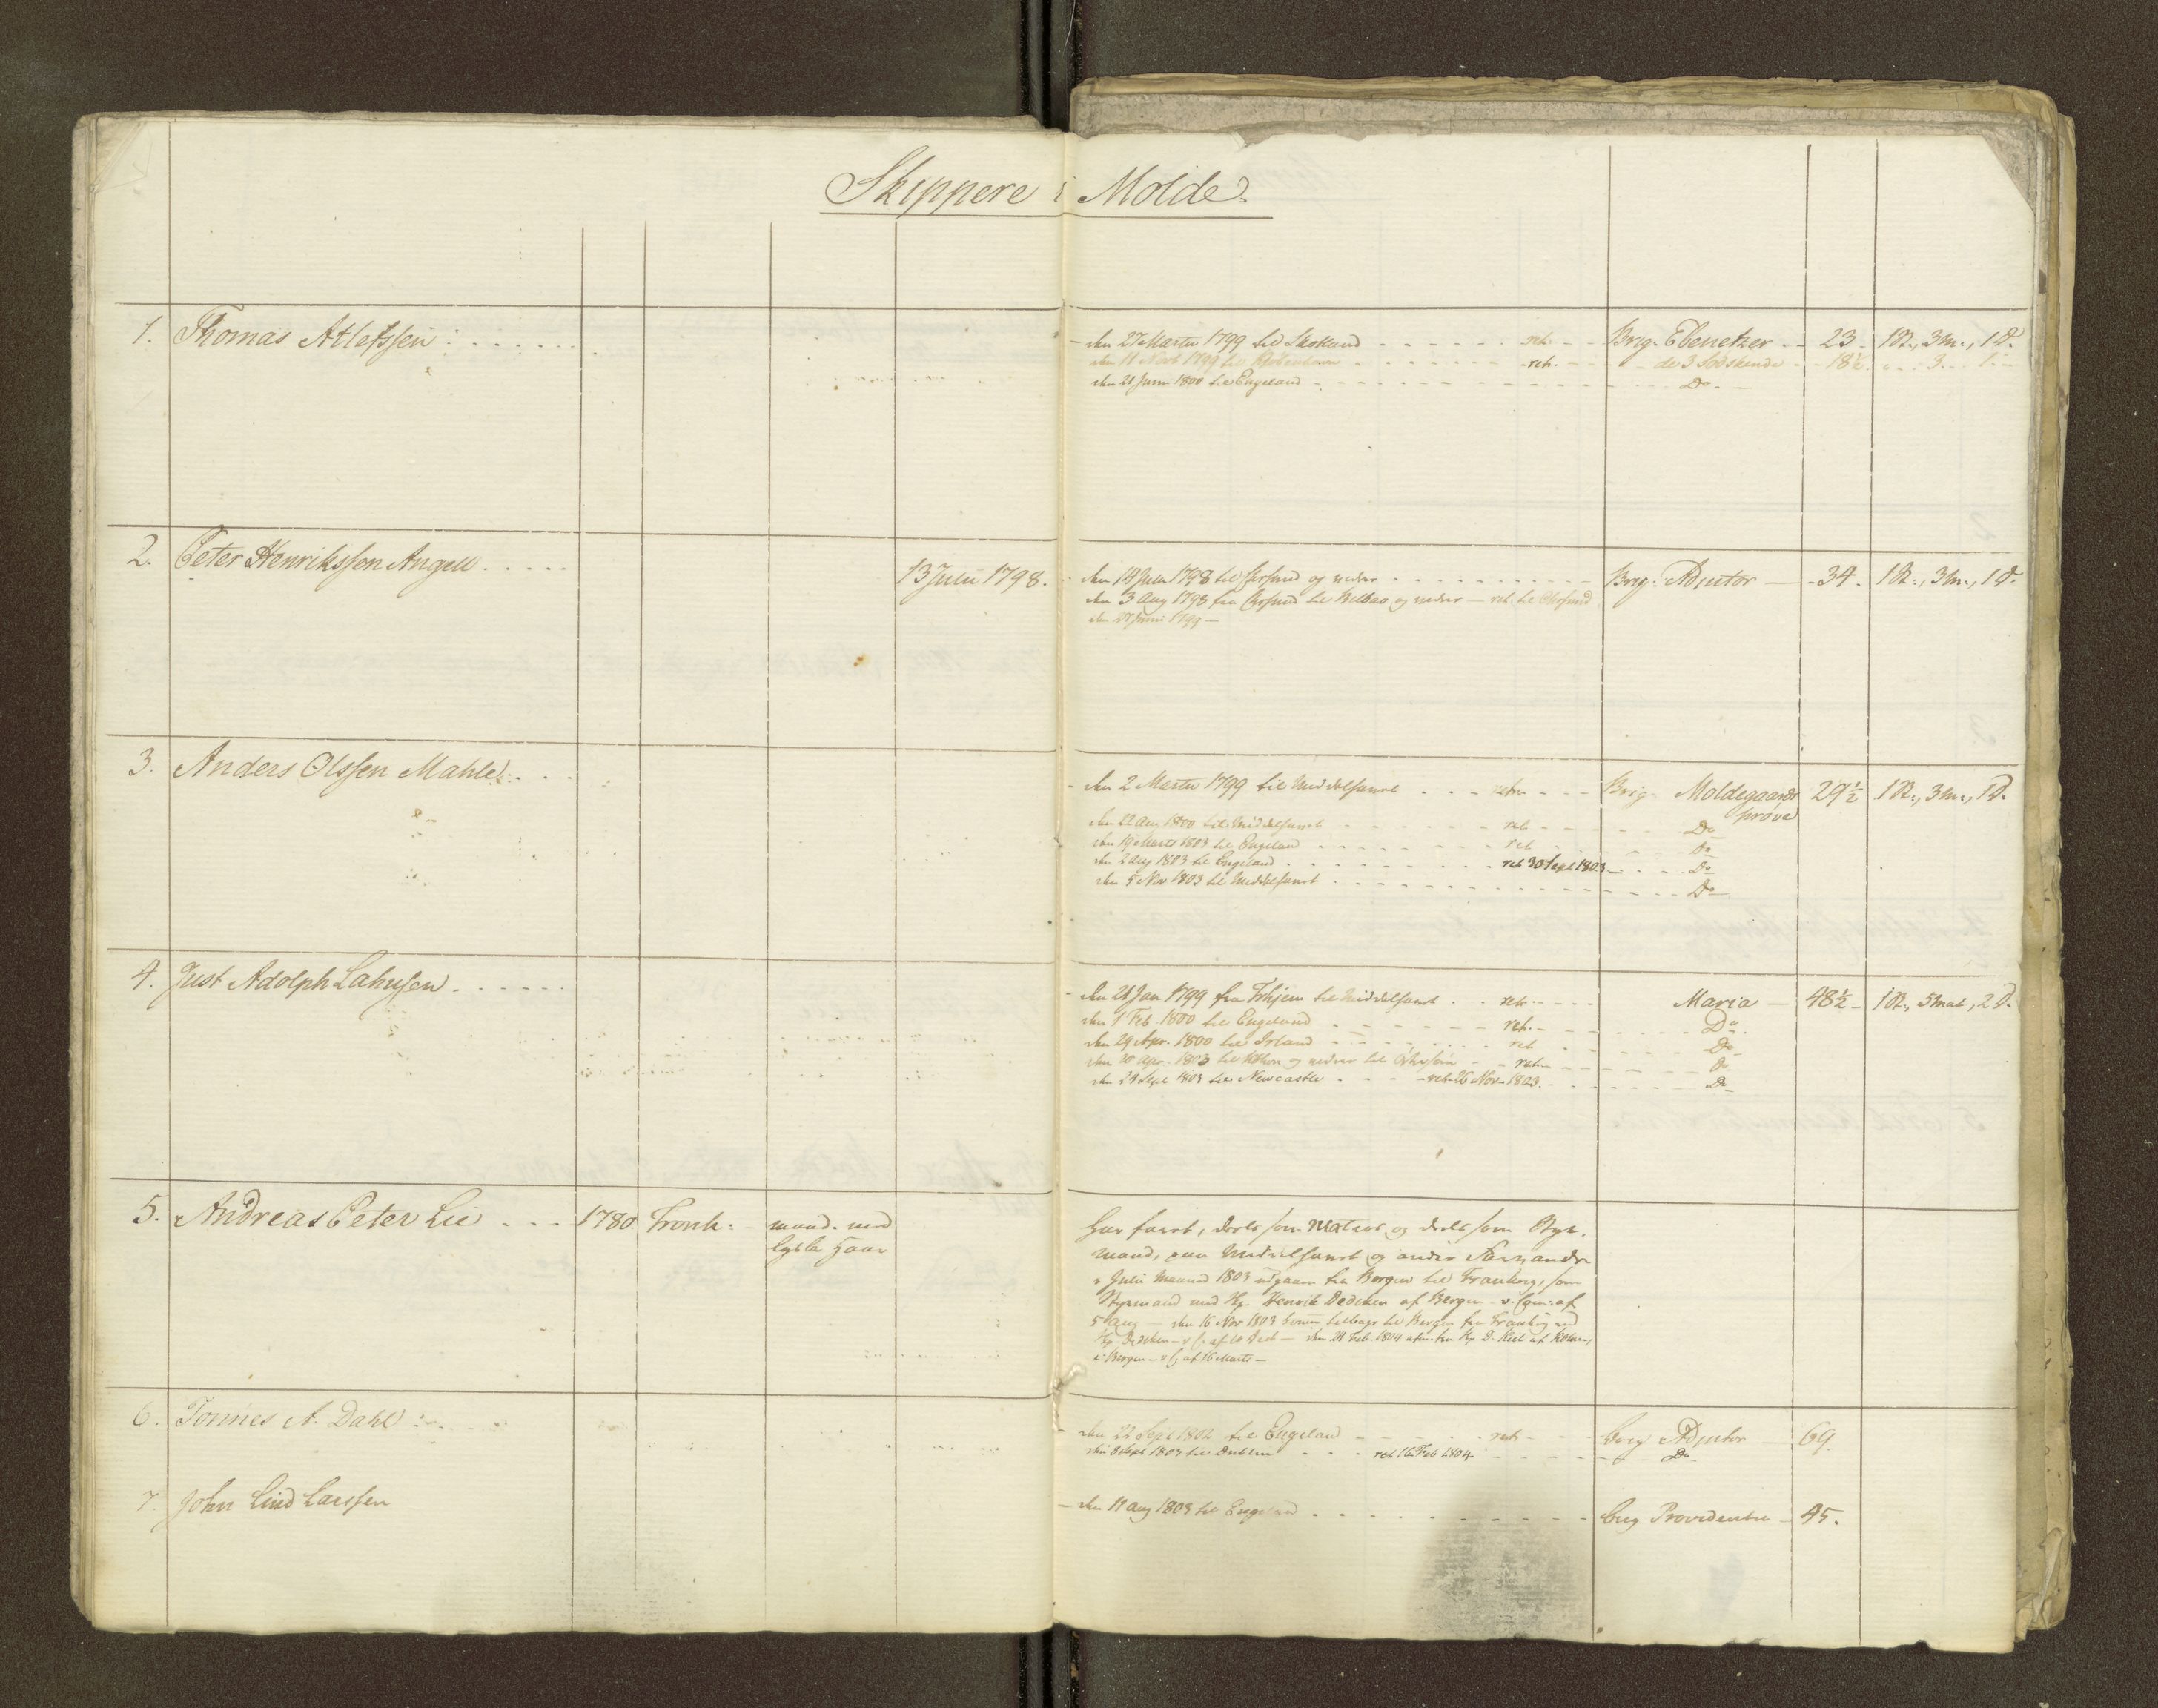 Skippere i Molde
1. Thomas Atlefssen
den 27 Martii 1799 til Skotland - ret. - Brig. Ebenetzer - 23 - 1 St., 3 m., 1 D.
den 11 1799 til - ret. - de 3 Södskende - 18½ 3 1
den 21 Junii 1800 til Engeland - Do
2. Peter Henrikssen Angell
13 Julii 1798.
den 14 Julii 1798 til og videre - Brig. Adjutor - 34. 1 St., 3 m., 1 D.
den 3 Aug 1798 fra til Bilbao og videre - ret. til
den 27 Junii 1799 -
3. Anders Olssen Mahle
den 2 Martii 1799 til Middelhavet - ret. - Brig. Moldegaards 29½ 1 St., 3 m., 1 D.
prøve
den 22 Aug 1800 til Middelhavet - ret - Do
den 19 Martii 1803 til Engeland - ret - Do
den 2 Aug 1803 til Engeland - ret 30 Sept 1803 - Do
den 5 Nov 1803 til Middelhavet - Do
4. Just Adolph Lahusen
den 28 Jan 1799 fra Trhjem til Middelhavet - ret. - Maria - 48½ - 1 St., 5 mat, 2 D.
den 1 Feb. 1800 til Engeland - ret. - Do
den 29 Apr. 1800 til Irland - ret - Do
den 20 Apr. 1803 til og videre til - ret. - Do
den 23 Sept 1803 til Newcastle - ret. 26 Nov. 1803. - Do
5. Andreas Peter Lie - 1780. Tronh. maad. med
lyse Haar
har faret, deels som Matros og deels som Styr-
mand, paa Middelhavet og andre Farvande
i Julii Maaned 1803 udgaaen fra Bergen til , som
Styrmand med Kp. Henrik Dedeken af Bergen - v. af
5 Aug - den 16 Nov 1803 kommen tilbage til Bergen fra med
Kp Dedeken - af 10 Dec - den 21 Feb. 1804 afm. fra Kp
i Bergen - af 16 Marts -
6. Tönnes A. Dahl
den 22 Sept 1802 til Engeland - ret - brig Adjutor 69.
den 8 Sept 1803 til Dublin - ret 16 Feb 1804. - Do
7. John Lind Larssen
den 11 Aug 1803 til Engeland - brig Providentia - 45.